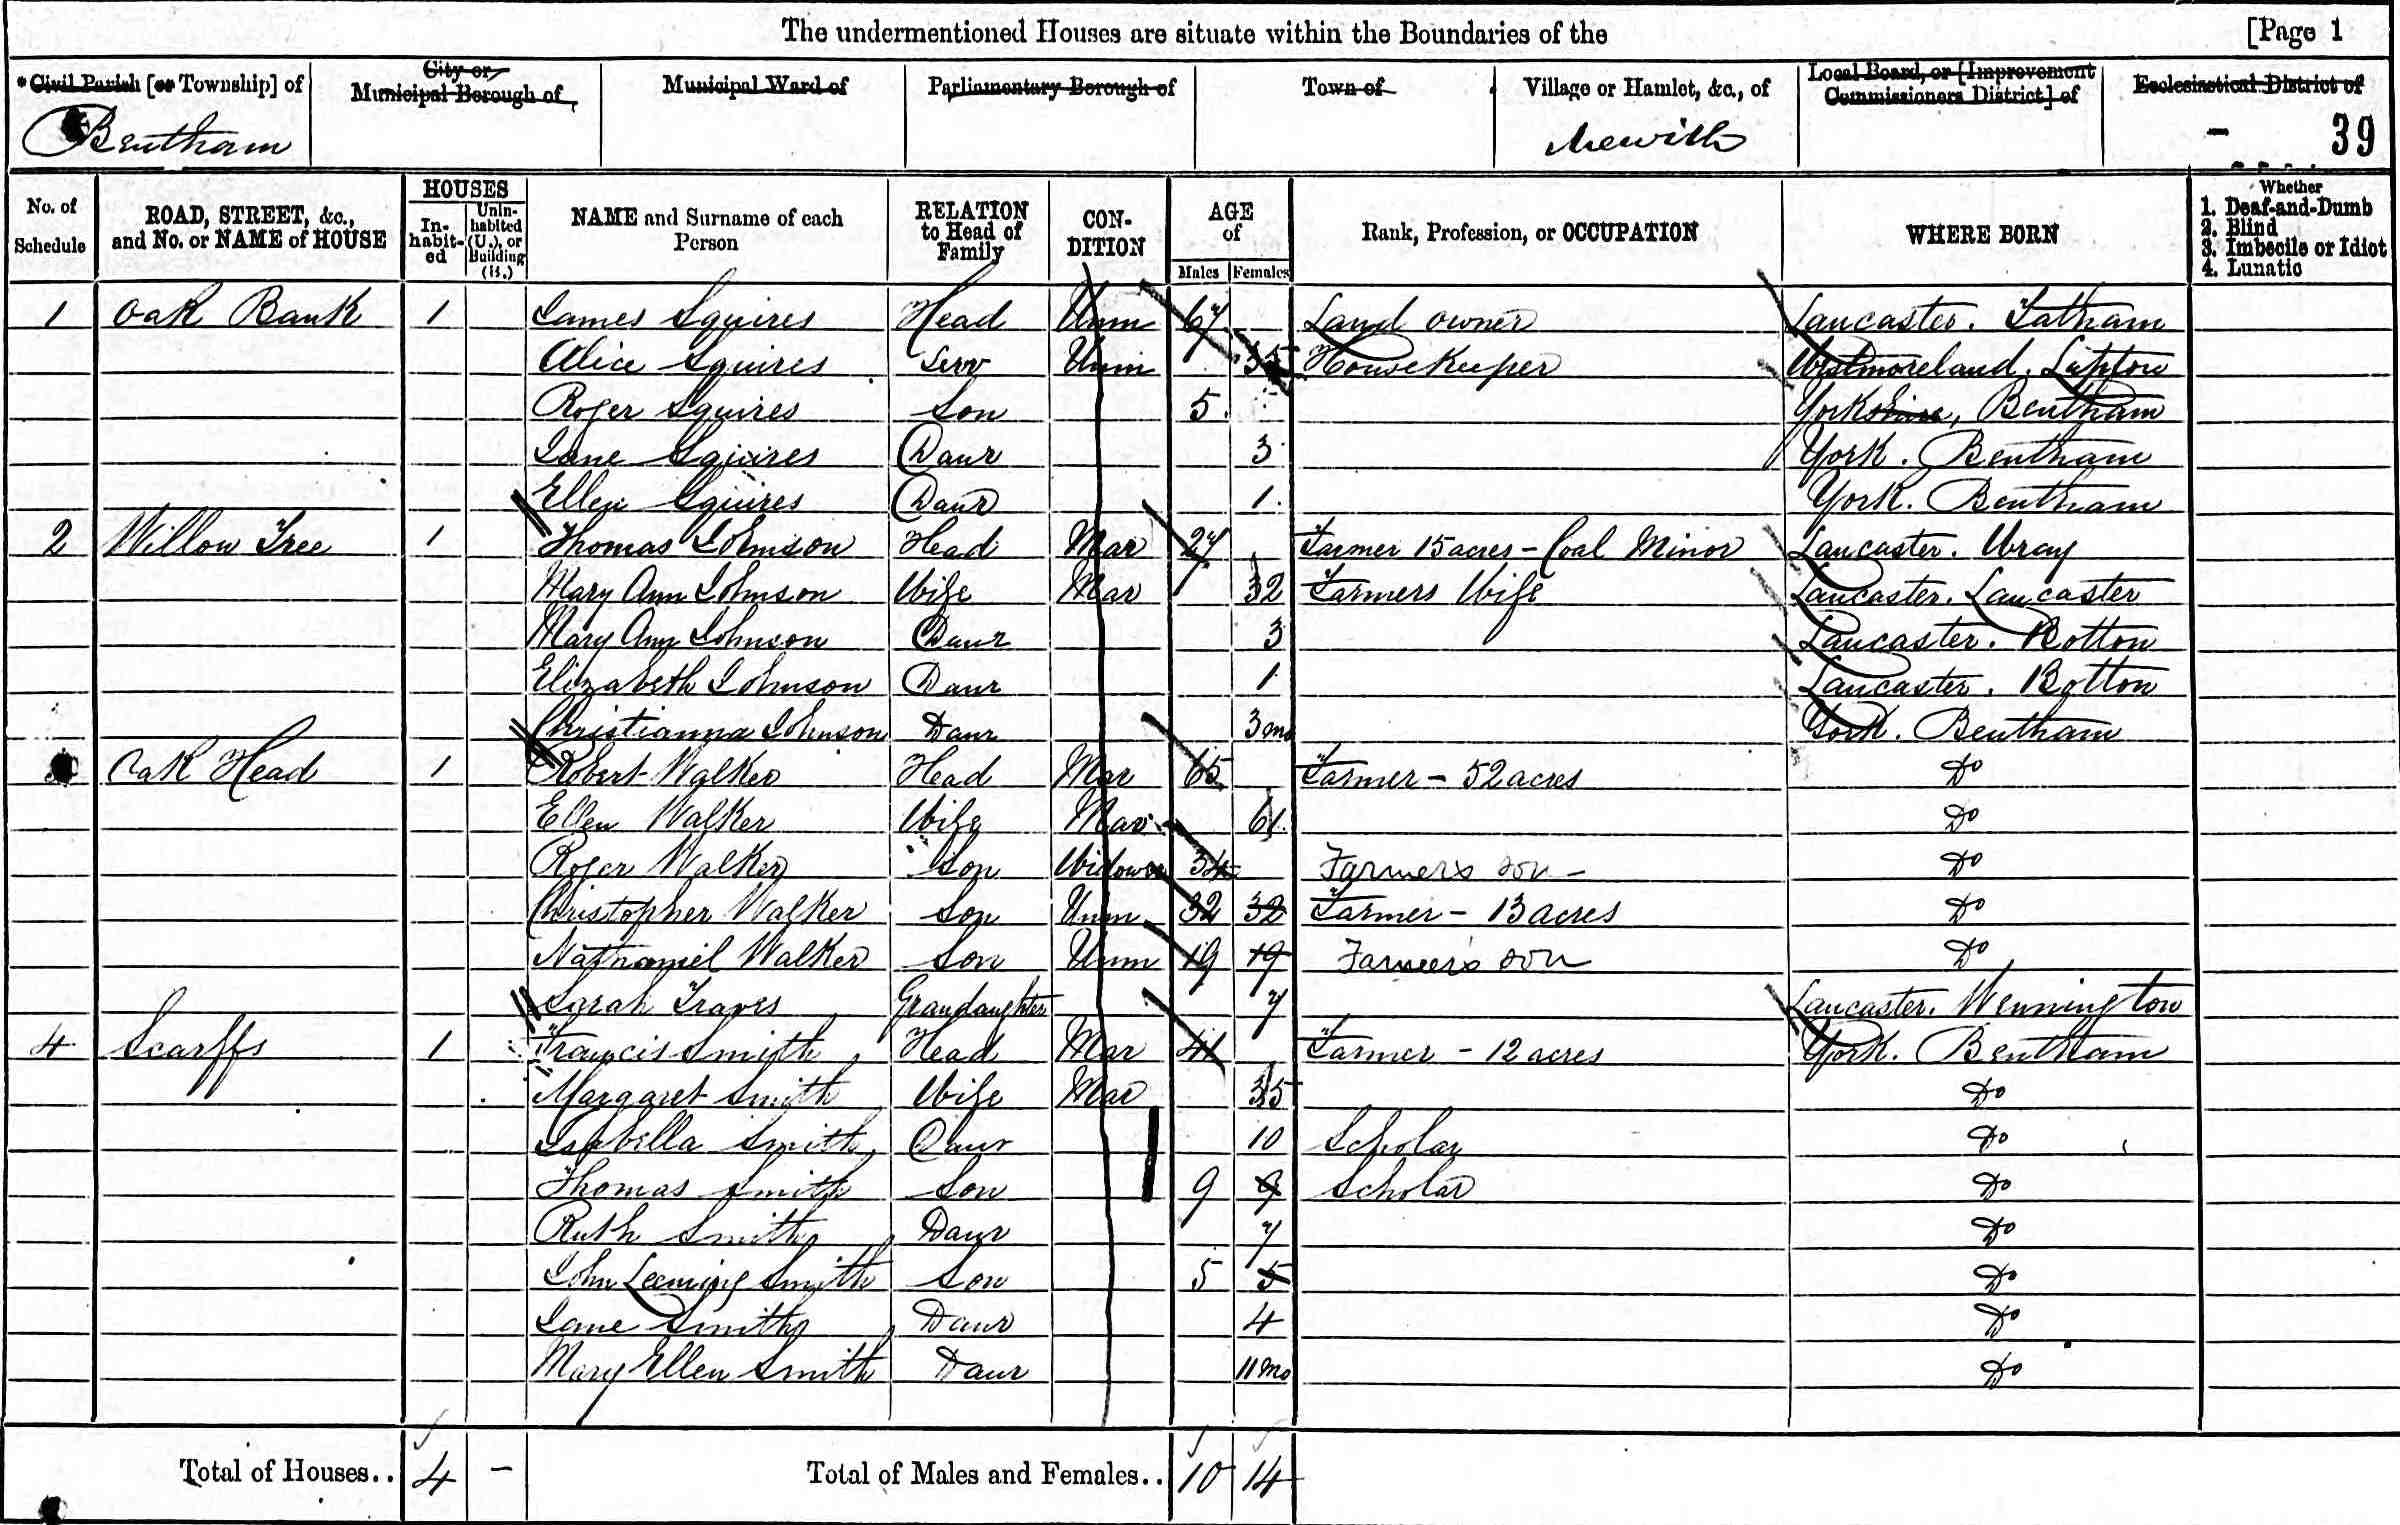 The undermentioned Houses are situate within the Boundaries of the [Page 1
*Civil Parish [or Township] of City or Municipal Borough of Municipal Ward of Parliamentary Borough of Town of Village or Hamlet, &c., of Local Board, or [Improvement Commissioners District] of Ecclesiastical District of
Bentham Mewith – 39
No. of Schedule ROAD, STREET, &c., and No. or NAME of HOUSE HOUSES In-habit-ed Unin-habited (U.), or Building (B.) NAME and Surname of each Person RELATION to Head of Family CON-DITION AGE of Males Females Rank, Profession, or OCCUPATION WHERE BORN Whether 1. Deaf-and-Dumb 2. Blind 3. Imbecile or Idiot 4. Lunatic
1 Oak Bank 1 James Squires Head Unm 67 Land owner Lancaster. Tatham
Alice Squires Serv Unm 35 Housekeeper Westmoreland. Lupton
Roger Squires Son 5 Yorkshire, Bentham
Jane Squires Daur 3 York. Bentham
Ellen Squires Daur 1 York. Bentham
2 Willow Tree 1 Thomas Johnson Head Mar 27 Farmer 15 acres – Coal Minor Lancaster. Wray
Mary Ann Johnson Wife Mar 32 Farmers Wife Lancaster. Lancaster
Mary Ann Johnson Daur 3 Lancaster. Botton
Elizabeth Johnson Daur 1 Lancaster. Botton
Christianna Johnson Daur 3 mo York. Bentham
Oak Head 1 Robert Walker Head Mar 65 Farmer – 52 acres Do
Ellen Walker Wife Mar 61 Do
Roger Walker Son Widower 34 Farmer's son – Do
Christopher Walker Son Unm 32 32 Farmer – 13 acres Do
Nathaniel Walker Son Unm 19 19 Farmer's son Do
Sarah Traves Grandaughter 7 Lancaster. Wennington
4 Scarffs 1 Francis Smith Head Mar 41 Farmer – 12 acres York. Bentham
Margaret Smith Wife Mar 35 Do
Isabella Smith Daur 10 Scholar Do
Thomas Smith Son 9 9 Scholar Do
Ruth Smith Daur 7 Do
John Leeming Smith Son 5 5 Do
Jane Smith Daur 4 Do
Mary Ellen Smith Daur 11 mo Do
Total of Houses.. 4 – Total of Males and Females.. 10 14